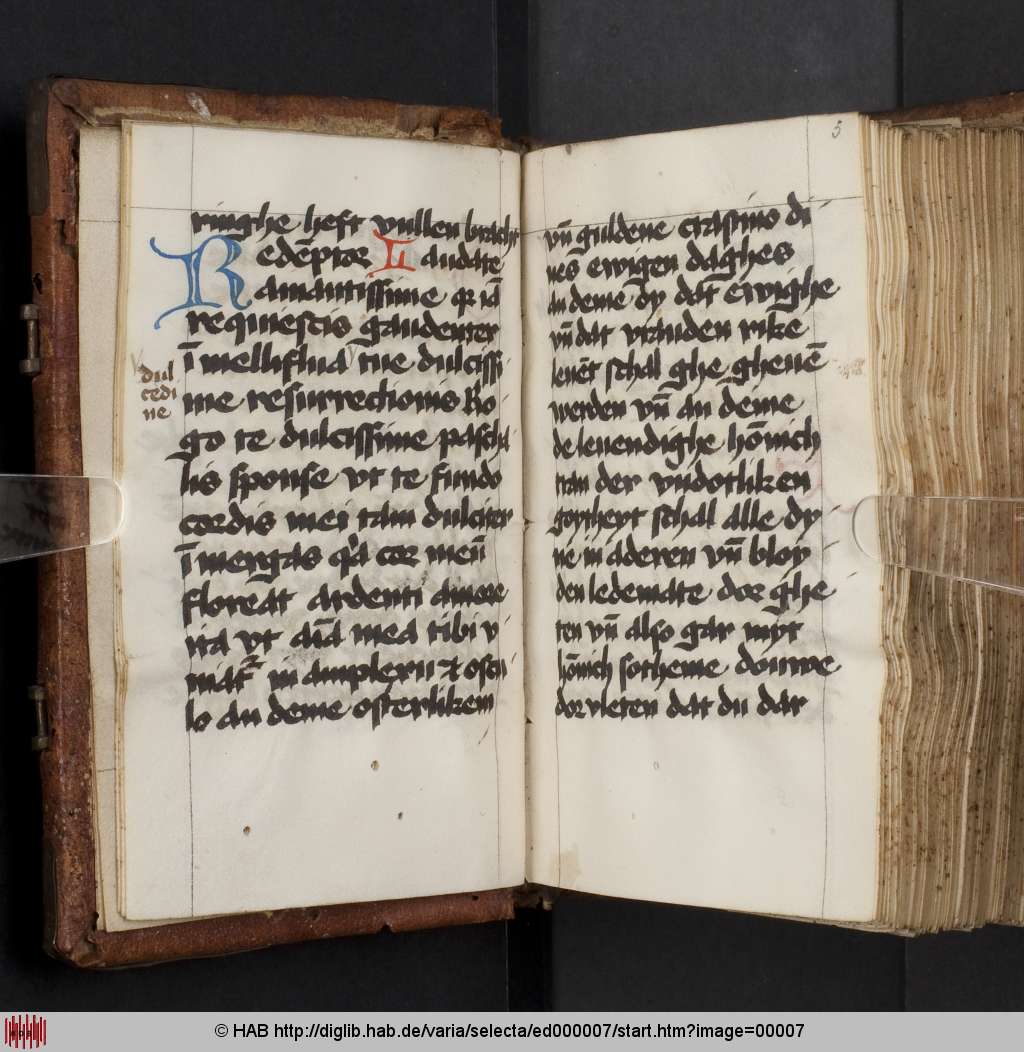 ringhe heft vullen bracht
Redēptor Laudate
amantissime qr iā
requiescis gaudenter
ī melliflua tue dulcissi
dul
cedi
ne
me resurrectionis Ro
go te dulcissime pascha
lis sponse vt te fundo
cordis mei tam dulciter
ī mergas qͣ cor meū
floreat ardenti amore
ita vt aīa mea tibi vi
in amplexu ⁊ oscu
lo an deme osterliken
5
vn̄ guldene crastino di
nes ewigen daghes
an deme dy dat ewighe
vn̄ dat vrauden rike
leuēt schal ghe gheuē
werden vn̄ an deme
de leuendighe hōnich
tran der vndotliken
gotheyt schal alle dy
ne in aderen vn̄ bloy
den ledemate dor ghe
ten vn̄ also gar myt
hōnich sotheme douwe
dor vleten dat du dar
© HAB http://diglib.hab.de/varia/selecta/ed000007/start.htm?image=00007